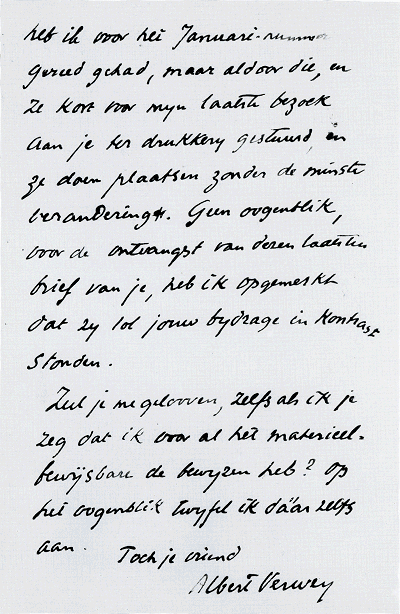 heb ik voor het Januari-nummer
gereed gehad, maar aldoor die, en
ze kort voor myn laatste bezoek
aan je ter drukkery gestuurd, en
ze doen plaatsen zonder de minste
verandering. Geen oogenblik,
voor de ontvangst van dezen laatsten
brief van je, heb ik opgemerkt
dat zy tot jouw bydrage in kontrast
stonden.
Zul je me gelooven, zelfs als ik je
zeg dat ik voor al het materieel-
bewijsbare de bewyzen heb? Op
het oogenblik twyfel ik dáár zelfs
aan.
Toch je vriend
Albert Verwey